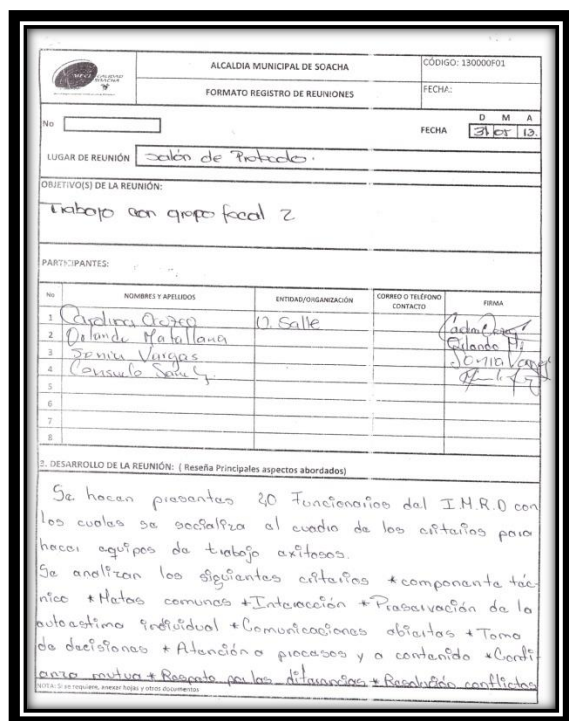 CALIDAD
SOACHA
ALCALDIA MUNICIPAL DE SOACHA
CÓDIGO: 130000F01
FORMATO REGISTRO DE REUNIONES
FECHA:
No
D M A
FECHA 31 05 13.
LUGAR DE REUNIÓN Salón de
OBJETIVO(S) DE LA REUNIÓN:
Trabajo con grupo focal 2
PARTICIPANTES:
No NOMBRES Y APELLIDOS ENTIDAD/ORGANIZACIÓN CORREO O TELÉFONO CONTACTO FIRMA
1 Carolina Orozco U. Salle
2 Orlando Matallana Orlando M
3 Sonia Vargas Sonia Vargas
4 Consuelo
5
6
7
8
2. DESARROLLO DE LA REUNIÓN: ( Reseña Principales aspectos abordados)
Se hacen presentes 20 Funcionarios del I.M.R.D con
los cuales se socializa el cuadro de los criterios para
hacer equipos de trabajo exitosos.
Se analizan los siguientes criterios *componente téc-
nico *Metas comunes *Interacción *Preservación de la
autoestima individual *Comunicaciones abiertas *Toma
de decisiones *Atención a procesos y a contenido *Confi-
anza mutua *Respeto por las diferencias *Resolución conflictos
NOTA: Si se requiere, anexar hojas y otros documentos